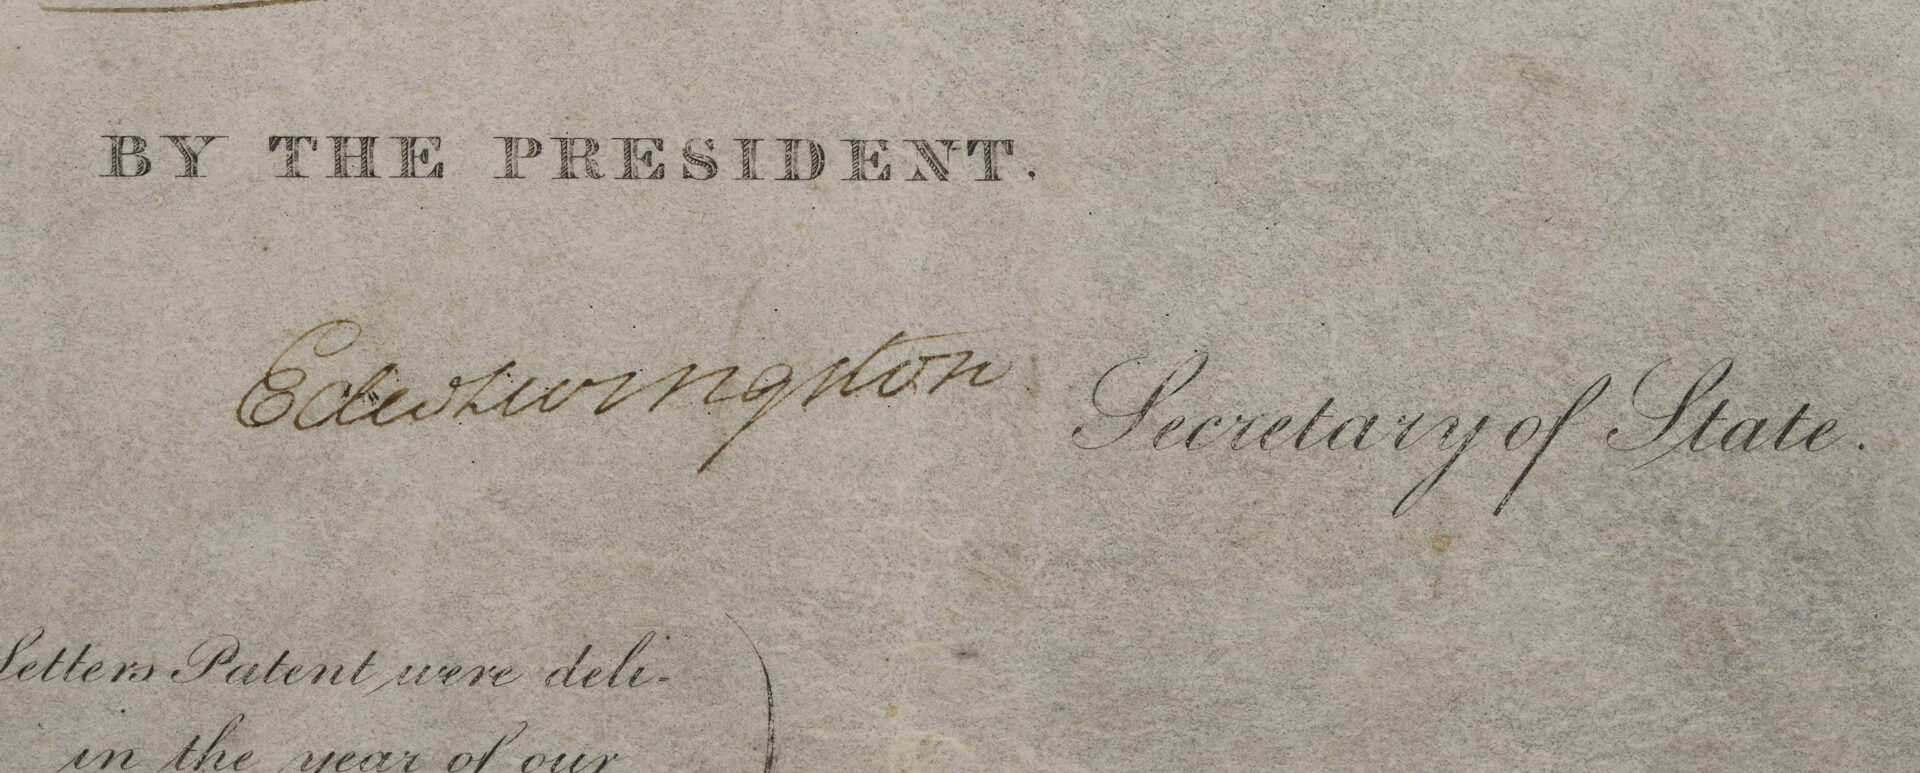 BY THE PRESIDENT.
Edw Livingston Secretary of State.
Letters Patent were deli-
in the year of our